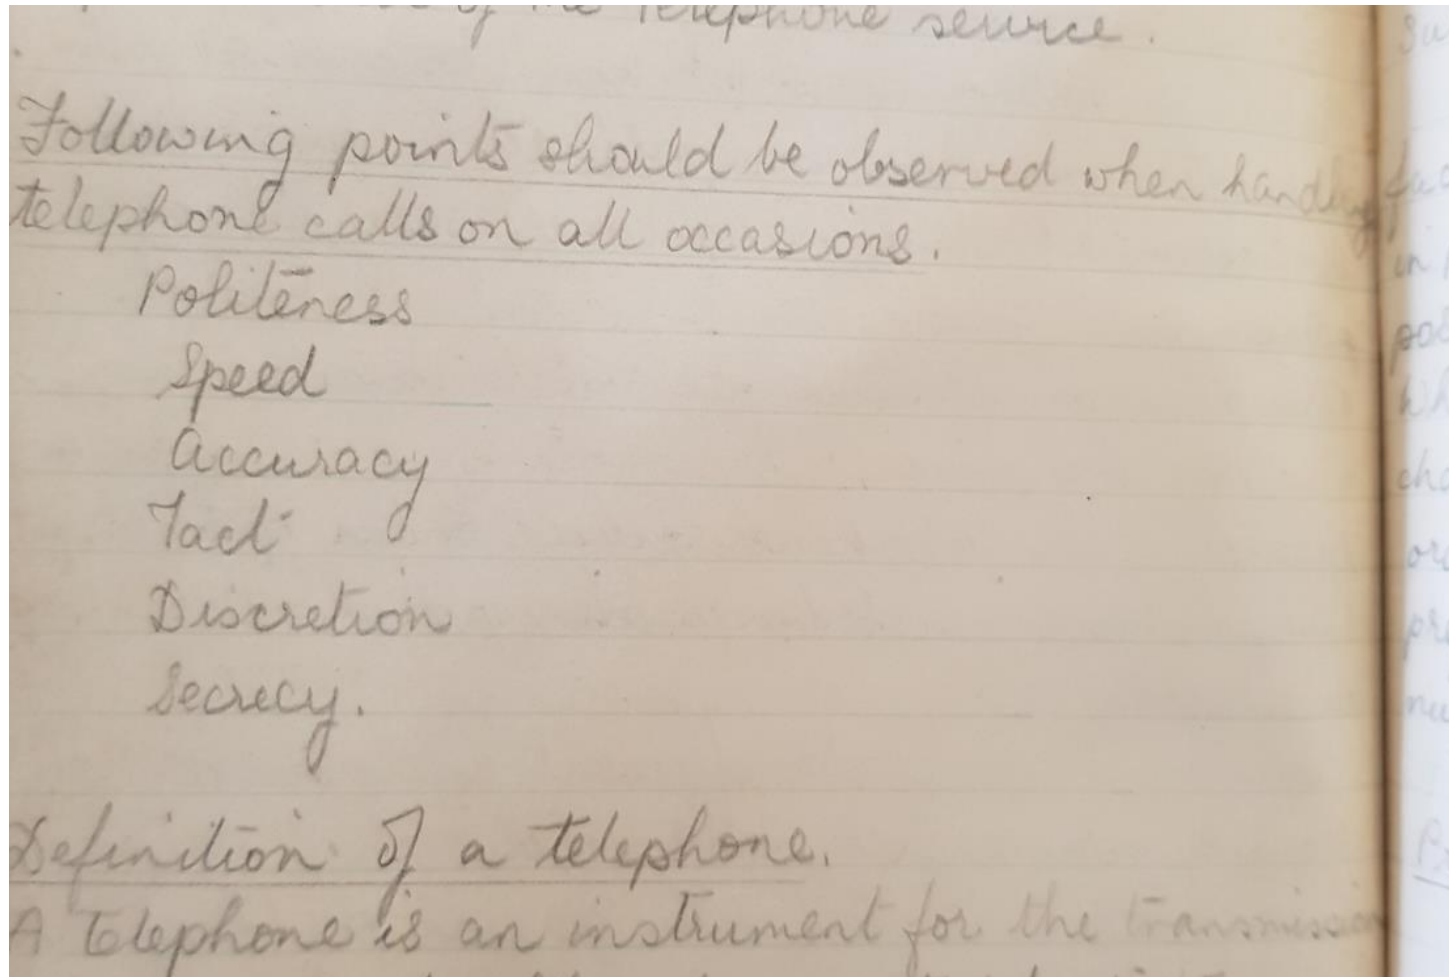 of the Telephone service.
Following points should be observed when handling
telephone calls on all occasions.
Politeness
Speed
Accuracy
Tact
Discretion
Secrecy.
Definition of a telephone.
A Telephone is an instrument for the transmission